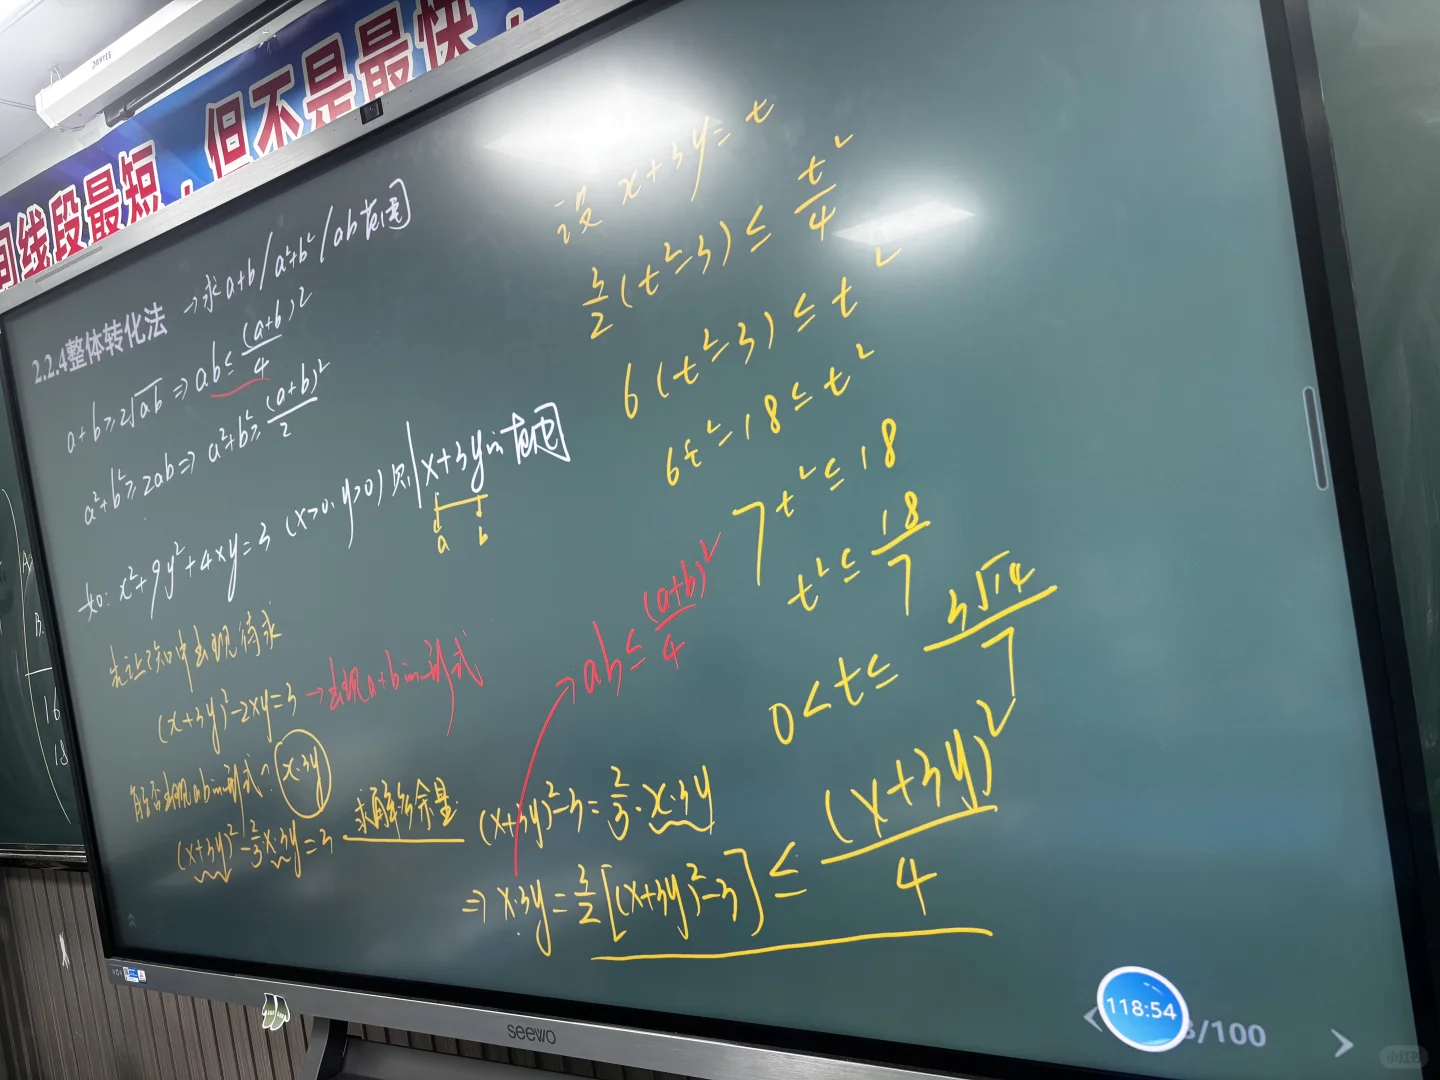 间线段最短，但不是最快，
2.2.4整体转化法 →求a+b/a²+b²/ab范围
a+b≥2√ab ⇒ ab≤(a+b)²/4
a²+b²≥2ab ⇒ a²+b²≥(a+b)²/2
如: x²+9y²+4xy=3 (x>0, y>0) 则 x+3y的范围
a b
先让已知中出现待求
(x+3y)²-2xy=3 →出现a+b的形式
能否出现ab的形式? x·3y
(x+3y)²-2/3 x·3y=3 求解多余量: (x+3y)²-3=2/3·x·3y
⇒ x·3y=3/2[(x+3y)²-3]≤(x+3y)²/4
ab≤(a+b)²/4
设 x+3y=t
3/2(t²-3)≤t²/4
6(t²-3)≤t²
6t²-18≤t²
7t²≤18
t²≤18/7
0<t≤3√14/7
seewo
118:54
/100
小红书